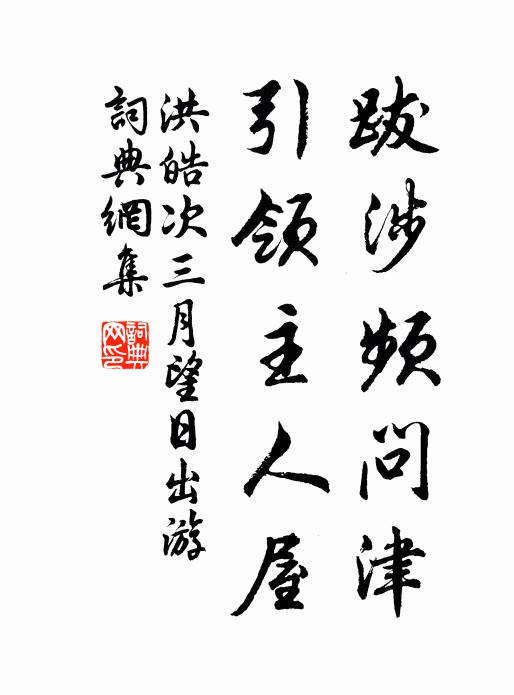 跋涉頻問津
引領主人屋
洪皓次三月望日出游
詞典網集
詞典网印